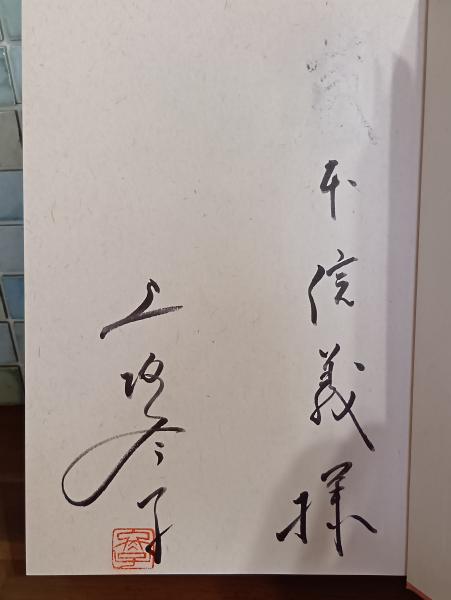 本信義様
上坂冬子